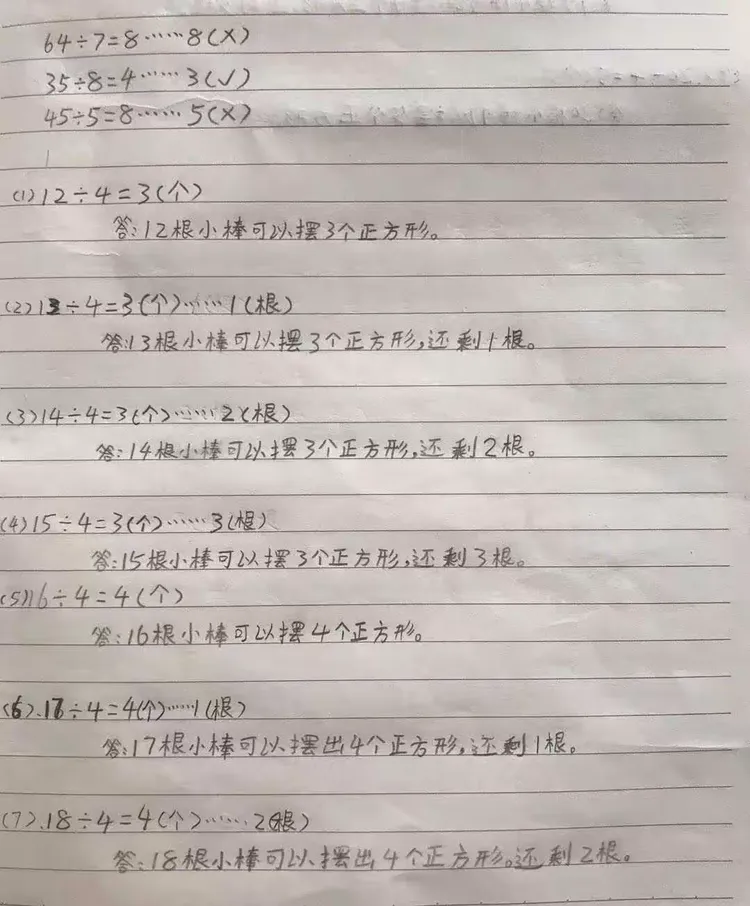 64÷7=8……8(×)
35÷8=4……3(√)
45÷5=8……5(×)
(1)12÷4=3(个)
答:12根小棒可以摆3个正方形。
(2)13÷4=3(个)……1(根)
答:13根小棒可以摆3个正方形,还剩1根。
(3)14÷4=3(个)……2(根)
答:14根小棒可以摆3个正方形,还剩2根。
(4)15÷4=3(个)……3(根)
答:15根小棒可以摆3个正方形,还剩3根。
(5)16÷4=4(个)
答:16根小棒可以摆4个正方形。
(6).17÷4=4(个)……1(根)
答:17根小棒可以摆出4个正方形,还剩1根。
(7).18÷4=4(个)……2(根)
答:18根小棒可以摆出4个正方形。还剩2根。